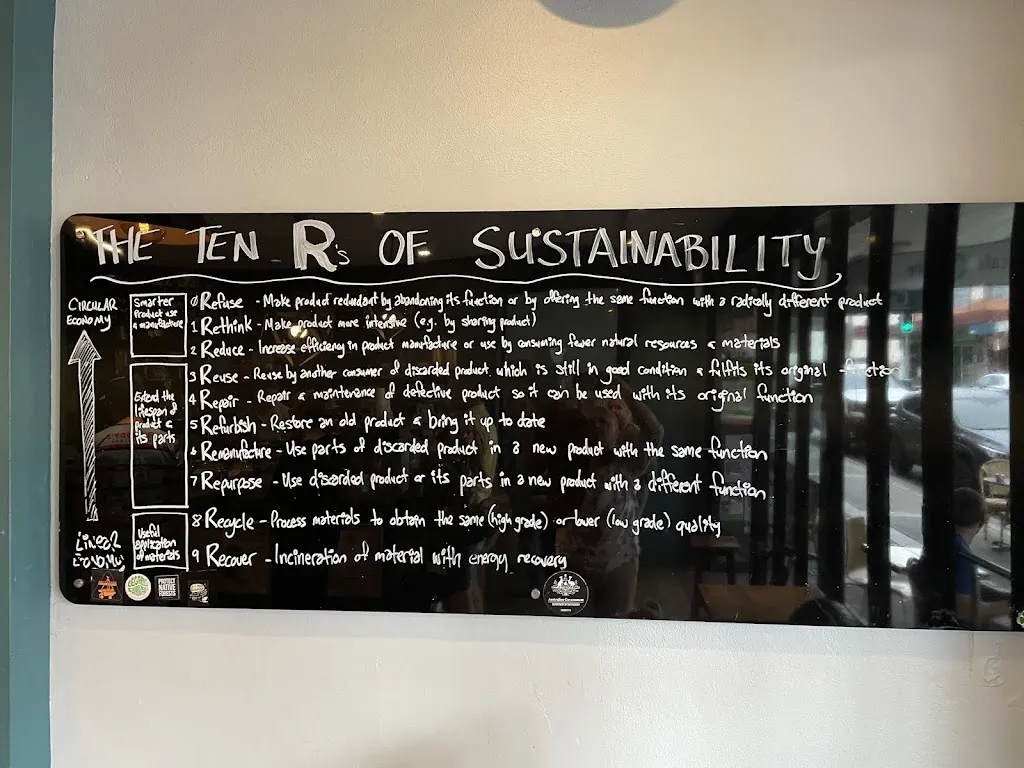 THE TEN Rs OF SUSTAINABILITY
CIRCULAR
ECONOMY
Smarter
Product use
& manufacture
0 Refuse - Make product redundant by abandoning its function or by offering the same function with a radically different product
1 Rethink - Make product more intensive (e.g. by sharing product)
2 Reduce - Increase efficiency in product manufacture or use by consuming fewer natural resources & materials
Extend the
lifespan of
product &
its parts
3 Reuse - Reuse by another consumer of discarded product, which is still in good condition & fulfils its original function
4 Repair - Repair & maintenance of defective product so it can be used with its original function
5 Refurbish - Restore an old product & bring it up to date
6 Remanufacture - Use parts of discarded product in a new product with the same function
7 Repurpose - Use discarded product or its parts in a new product with a different function
Useful
application
of materials
8 Recycle - Process materials to obtain the same (high grade) or lower (low grade) quality
9 Recover - Incineration of material with energy recovery
Linear
Economy
PROTECT
NATIVE
FORESTS
Australian Government